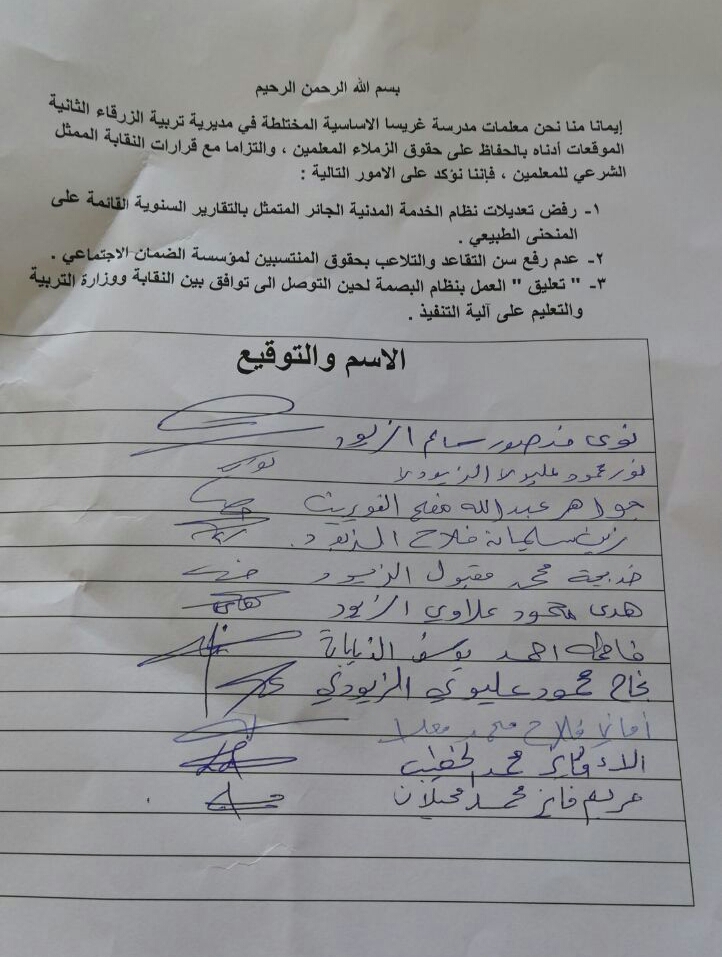 بسم الله الرحمن الرحيم
إيمانا منا نحن معلمات مدرسة غريسا الاساسية المختلطة في مديرية تربية الزرقاء الثانية
الموقعات أدناه بالحفاظ على حقوق الزملاء المعلمين ، والتزاما مع قرارات النقابة الممثل
الشرعي للمعلمين ، فإننا نؤكد على الامور التالية :
١- رفض تعديلات نظام الخدمة المدنية الجائر المتمثل بالتقارير السنوية القائمة على
المنحنى الطبيعي .
٢- عدم رفع سن التقاعد والتلاعب بحقوق المنتسبين لمؤسسة الضمان الاجتماعي .
٣- " تعليق " العمل بنظام البصمة لحين التوصل الى توافق بين النقابة ووزارة التربية
والتعليم على آلية التنفيذ .
الاسم والتوقيع
منصور سالم الزيود
نور محمود عليوي الزيودي
جواهر عبدالله مفلح
زينب سليمان فلاح الزيود
خديجة محمد مقبول الزيود
هدى محمود علاوي الزيود
فاطمة احمد يوسف
نجاح محمود عليوي الزيودي
اماني فلاح محمد
الاء فايز محمد الخطيب
مريم فايز محمد